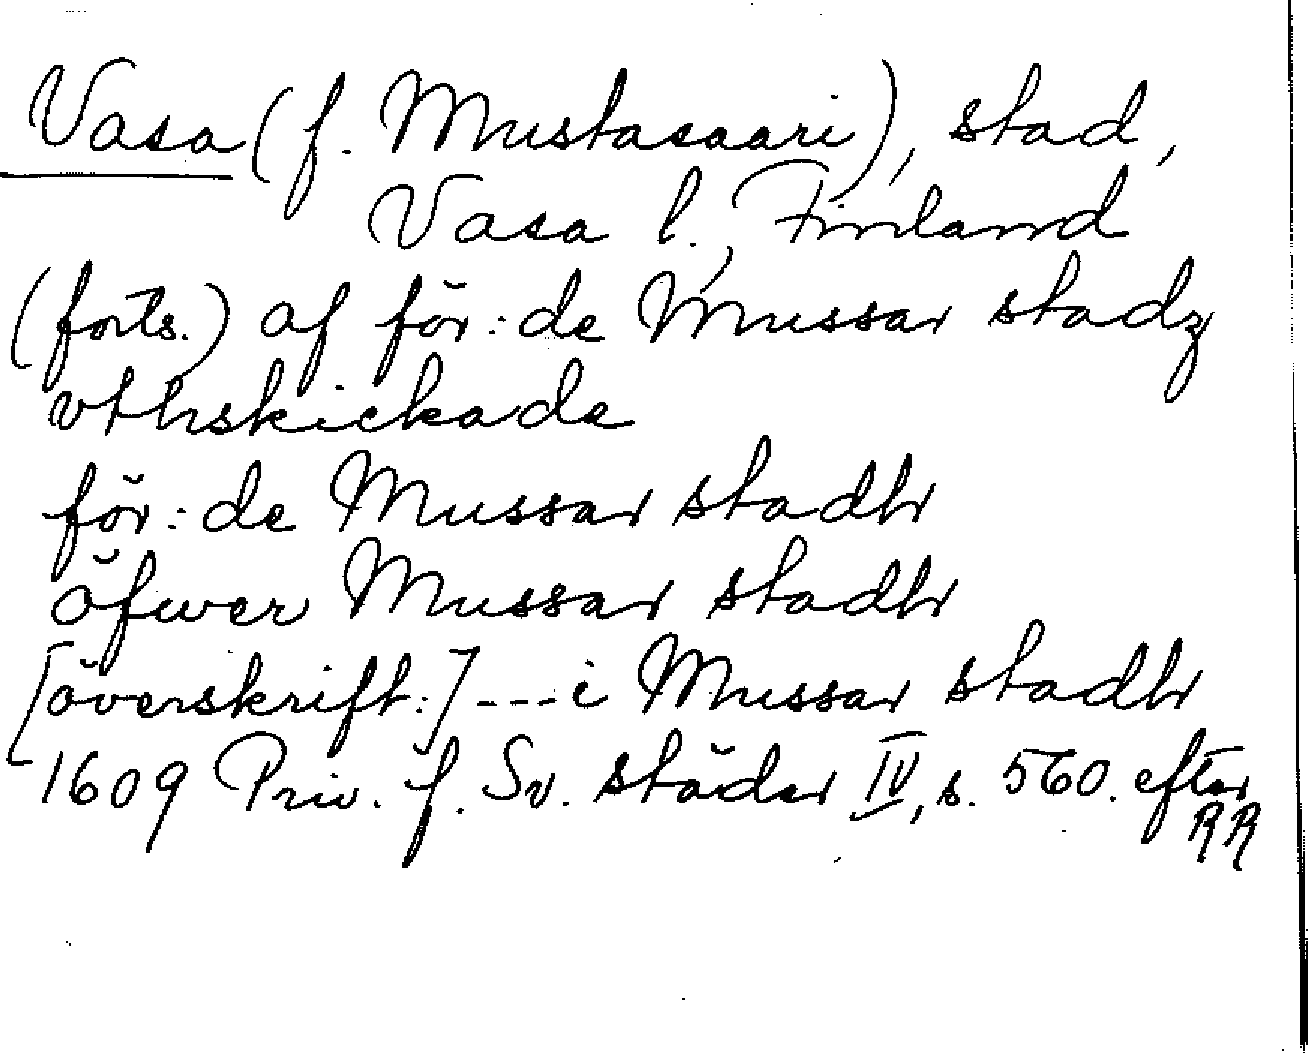 Vasa (f. Mustasaari), stad,
Vasa l., Finland
(forts.) af för:de Mussar stadz
vthskickade
för:de Mussar stadh
öfwer Mussar stadh
[överskrift:] --- i Mussar stadh
1609 Priv. f. Sv. städer IV, s. 560. efter
RR